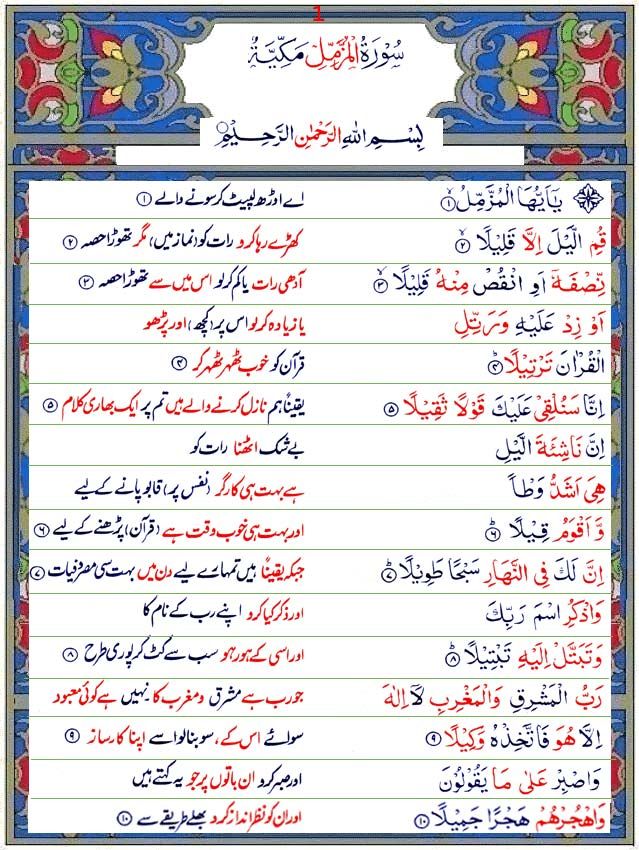 1
سُوۡرَةُ الۡمُزَّمِّلِ مَكِّيَّةٌ
بِسۡمِ اللهِ الرَّحۡمٰنِ الرَّحِيۡمِ
يٰۤاَيُّهَا الۡمُزَّمِّلُ ۙ‏ ۱ اے اوڑھ لپیٹ کر سونے والے ۱
قُمِ الَّيۡلَ اِلَّا قَلِيۡلًا ۙ ۲ کھڑے رہا کرو رات کو (نماز میں) مگر تھوڑا حصہ ۲
نِّصۡفَهٗۤ اَوِ انْقُصۡ مِنۡهُ قَلِيۡلًا ۙ ۳ آدھی رات یا کم کرلو اس میں سے تھوڑا حصہ ۳
اَوۡ زِدۡ عَلَيۡهِ وَرَتِّلِ یا زیادہ کرلو اس پر (کچھ) اور پڑھو
الۡقُرۡاٰنَ تَرۡتِيۡلًا ؕ ۴ قرآن کو خوب ٹھہر ٹھہر کر ۴
اِنَّا سَنُلۡقِىۡ عَلَيۡكَ قَوۡلًا ثَقِيۡلًا ۵ یقیناً ہم نازل کرنے والے ہیں تم پر ایک بھاری کلام ۵
اِنَّ نَاشِئَةَ الَّيۡلِ بے شک اٹھنا رات کو
هِىَ اَشَدُّ وَطۡـاً ہے بہت ہی کارگر (نفس پر) قابو پانے کے لیے
وَّاَقۡوَمُ قِيۡلًا ؕ ۶ اور بہت ہی خوب وقت ہے (قرآن) پڑھنے کے لیے ۶
اِنَّ لَكَ فِى النَّهَارِ سَبۡحًا طَوِيۡلًا ؕ ۷ جبکہ یقیناً ہیں تمہارے لیے دن میں بہت سی مصروفیات ۷
وَاذۡكُرِ اسۡمَ رَبِّكَ اور ذکر کیا کرو اپنے رب کے نام کا
وَتَبَتَّلۡ اِلَيۡهِ تَبۡتِيۡلًا ؕ ۸ اور اسی کے ہو رہو سب سے کٹ کر پوری طرح ۸
رَبُّ الۡمَشۡرِقِ وَالۡمَغۡرِبِ لَاۤ اِلٰهَ جو رب ہے مشرق و مغرب کا نہیں ہے کوئی معبود
اِلَّا هُوَ فَاتَّخِذۡهُ وَكِيۡلًا ۹ سوائے اس کے، سو بنا لو اسے اپنا کارساز ۹
وَاصۡبِرۡ عَلٰى مَا يَقُوۡلُوۡنَ اور صبر کرو ان باتوں پر جو یہ کہتے ہیں
وَاهۡجُرۡهُمۡ هَجۡرًا جَمِيۡلًا ۱۰ اور ان کو نظر انداز کردو بھلے طریقے سے ۱۰